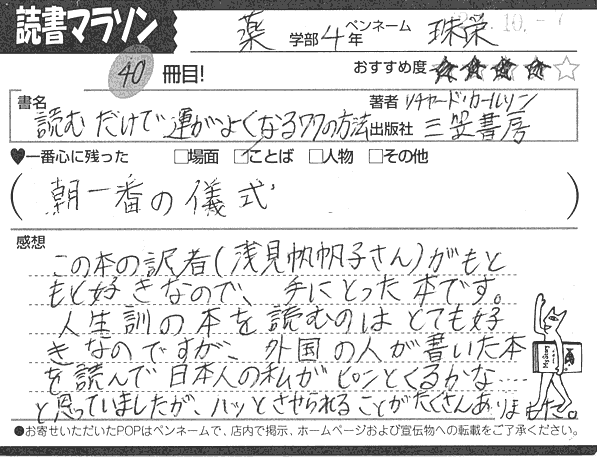 読書マラソン
薬 学部 4年 ペンネーム 珠栄
40 冊目! おすすめ度 ★★★★☆
書名 読むだけで運がよくなる77の方法
著者 リチャード・カールソン
出版社 三笠書房
♥一番心に残った □場面 □ことば □人物 □その他
(朝一番の儀式)
感想
この本の訳者(浅見帆帆子さん)がもと
もと好きなので、手にとった本です。
人生訓の本を読むのはとても好
きなのですが、外国の人が書いた本
を読んで日本人の私がピンとくるかな…
と思っていましたが、ハッとさせられることがたくさんありました。
●お寄せいただいたPOPはペンネームで、店内で掲示、ホームページおよび宣伝物への転載をご了承ください。